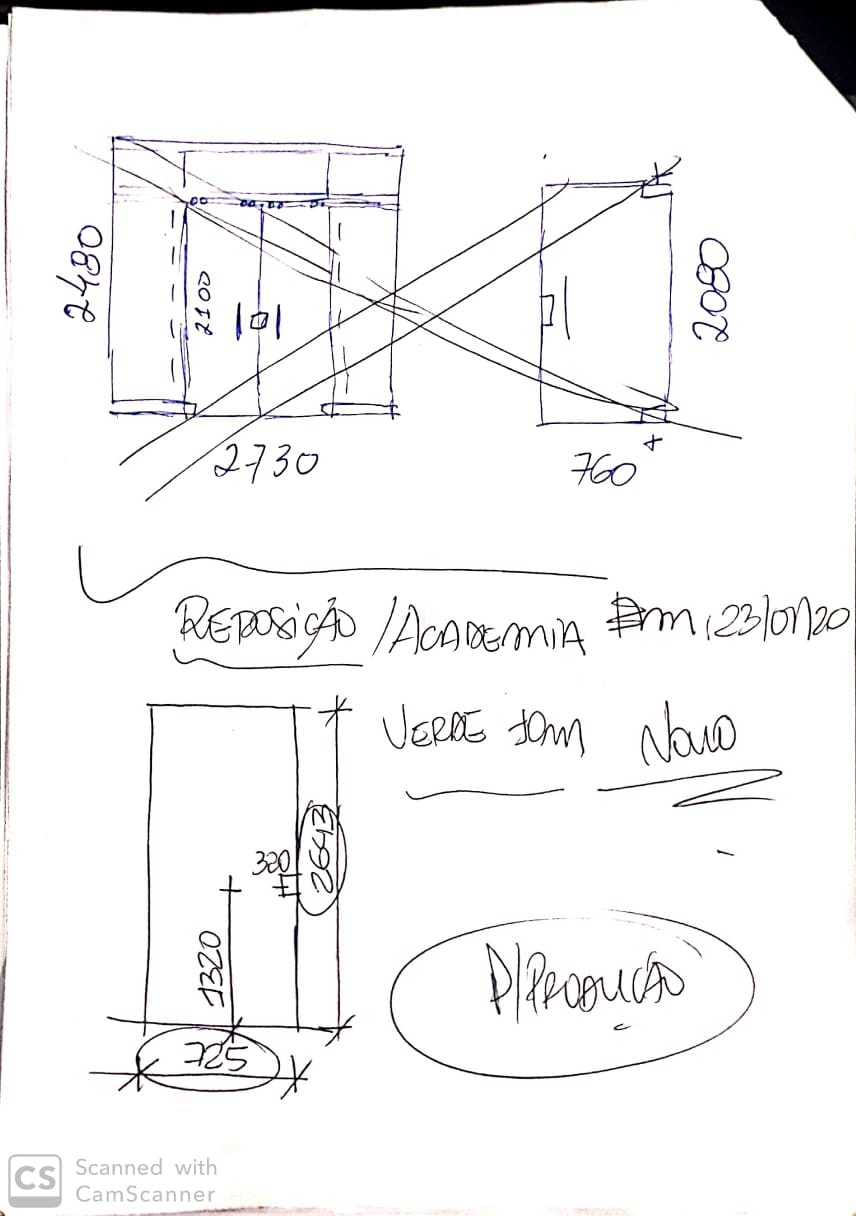 2480
2100
2730
2080
760
REPOSIÇÃO / ACADEMIA Em, 23/01/20
VERDE 10m NOVO
2643
320
1320
725
P/PRODUÇÃO
CS
Scanned with
CamScanner